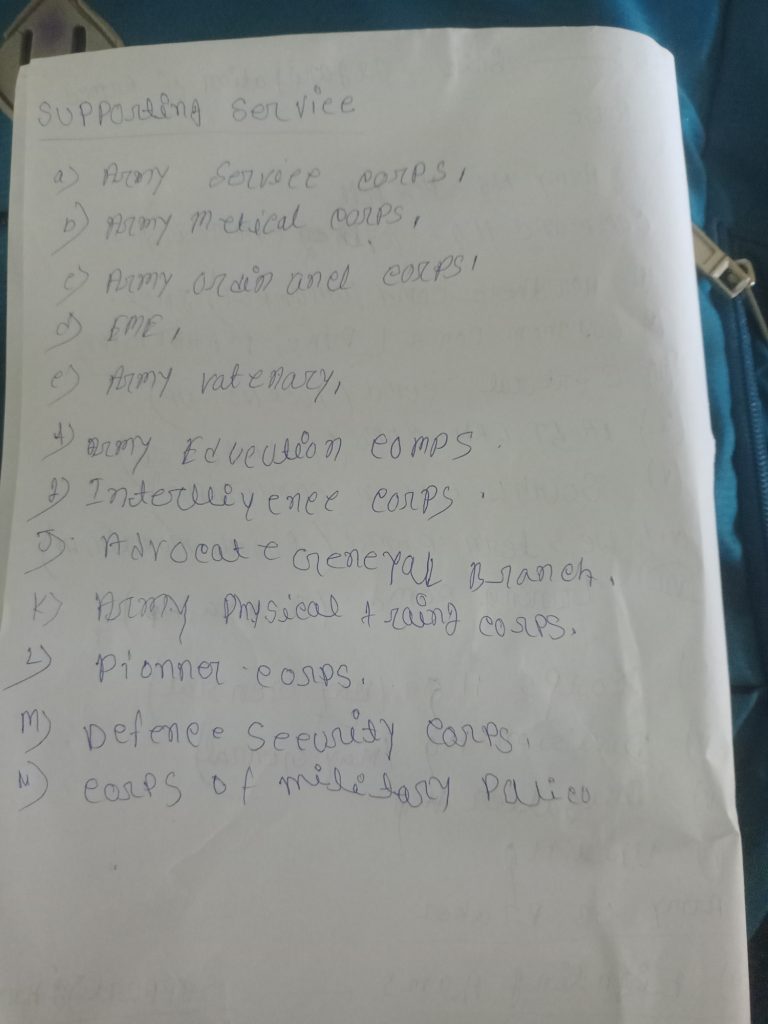 Supporting Service
a) Army Service corps,
b) Army Metical corps,
c) Army ordin ancl corps,
d) EME,
e) Army vatenary,
f) Army Education comps.
g) Interlligence corps.
J) Advocate General Branch.
K) Army Physical traing corps.
L) Pionner corps.
M) Defence Security Corps.
N) corps of military Palico